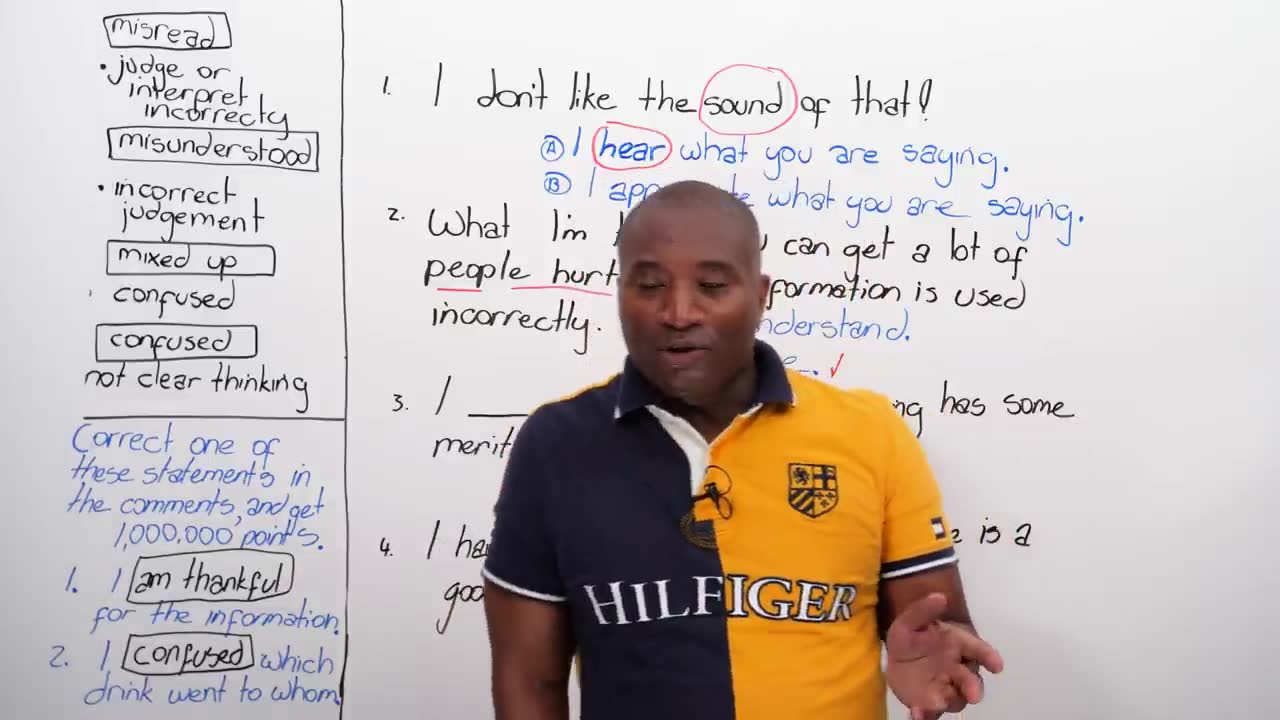 misread
• judge or
interpret
incorrecty
misunderstood
• incorrect
judgement
mixed up
confused
confused
not clear thinking
Correct one of
these statements in
the comments, and get
1,000,000 points.
1. I am thankful
for the information.
2. I confused which
drink went to whom.
1. I don't like the sound of that!
A I hear what you are saying.
B I what you are saying.
2. What I'm can get a lot of
people hurt is used
incorrectly.
3. I ___ has some
merit
4. I is a
HILFIGER